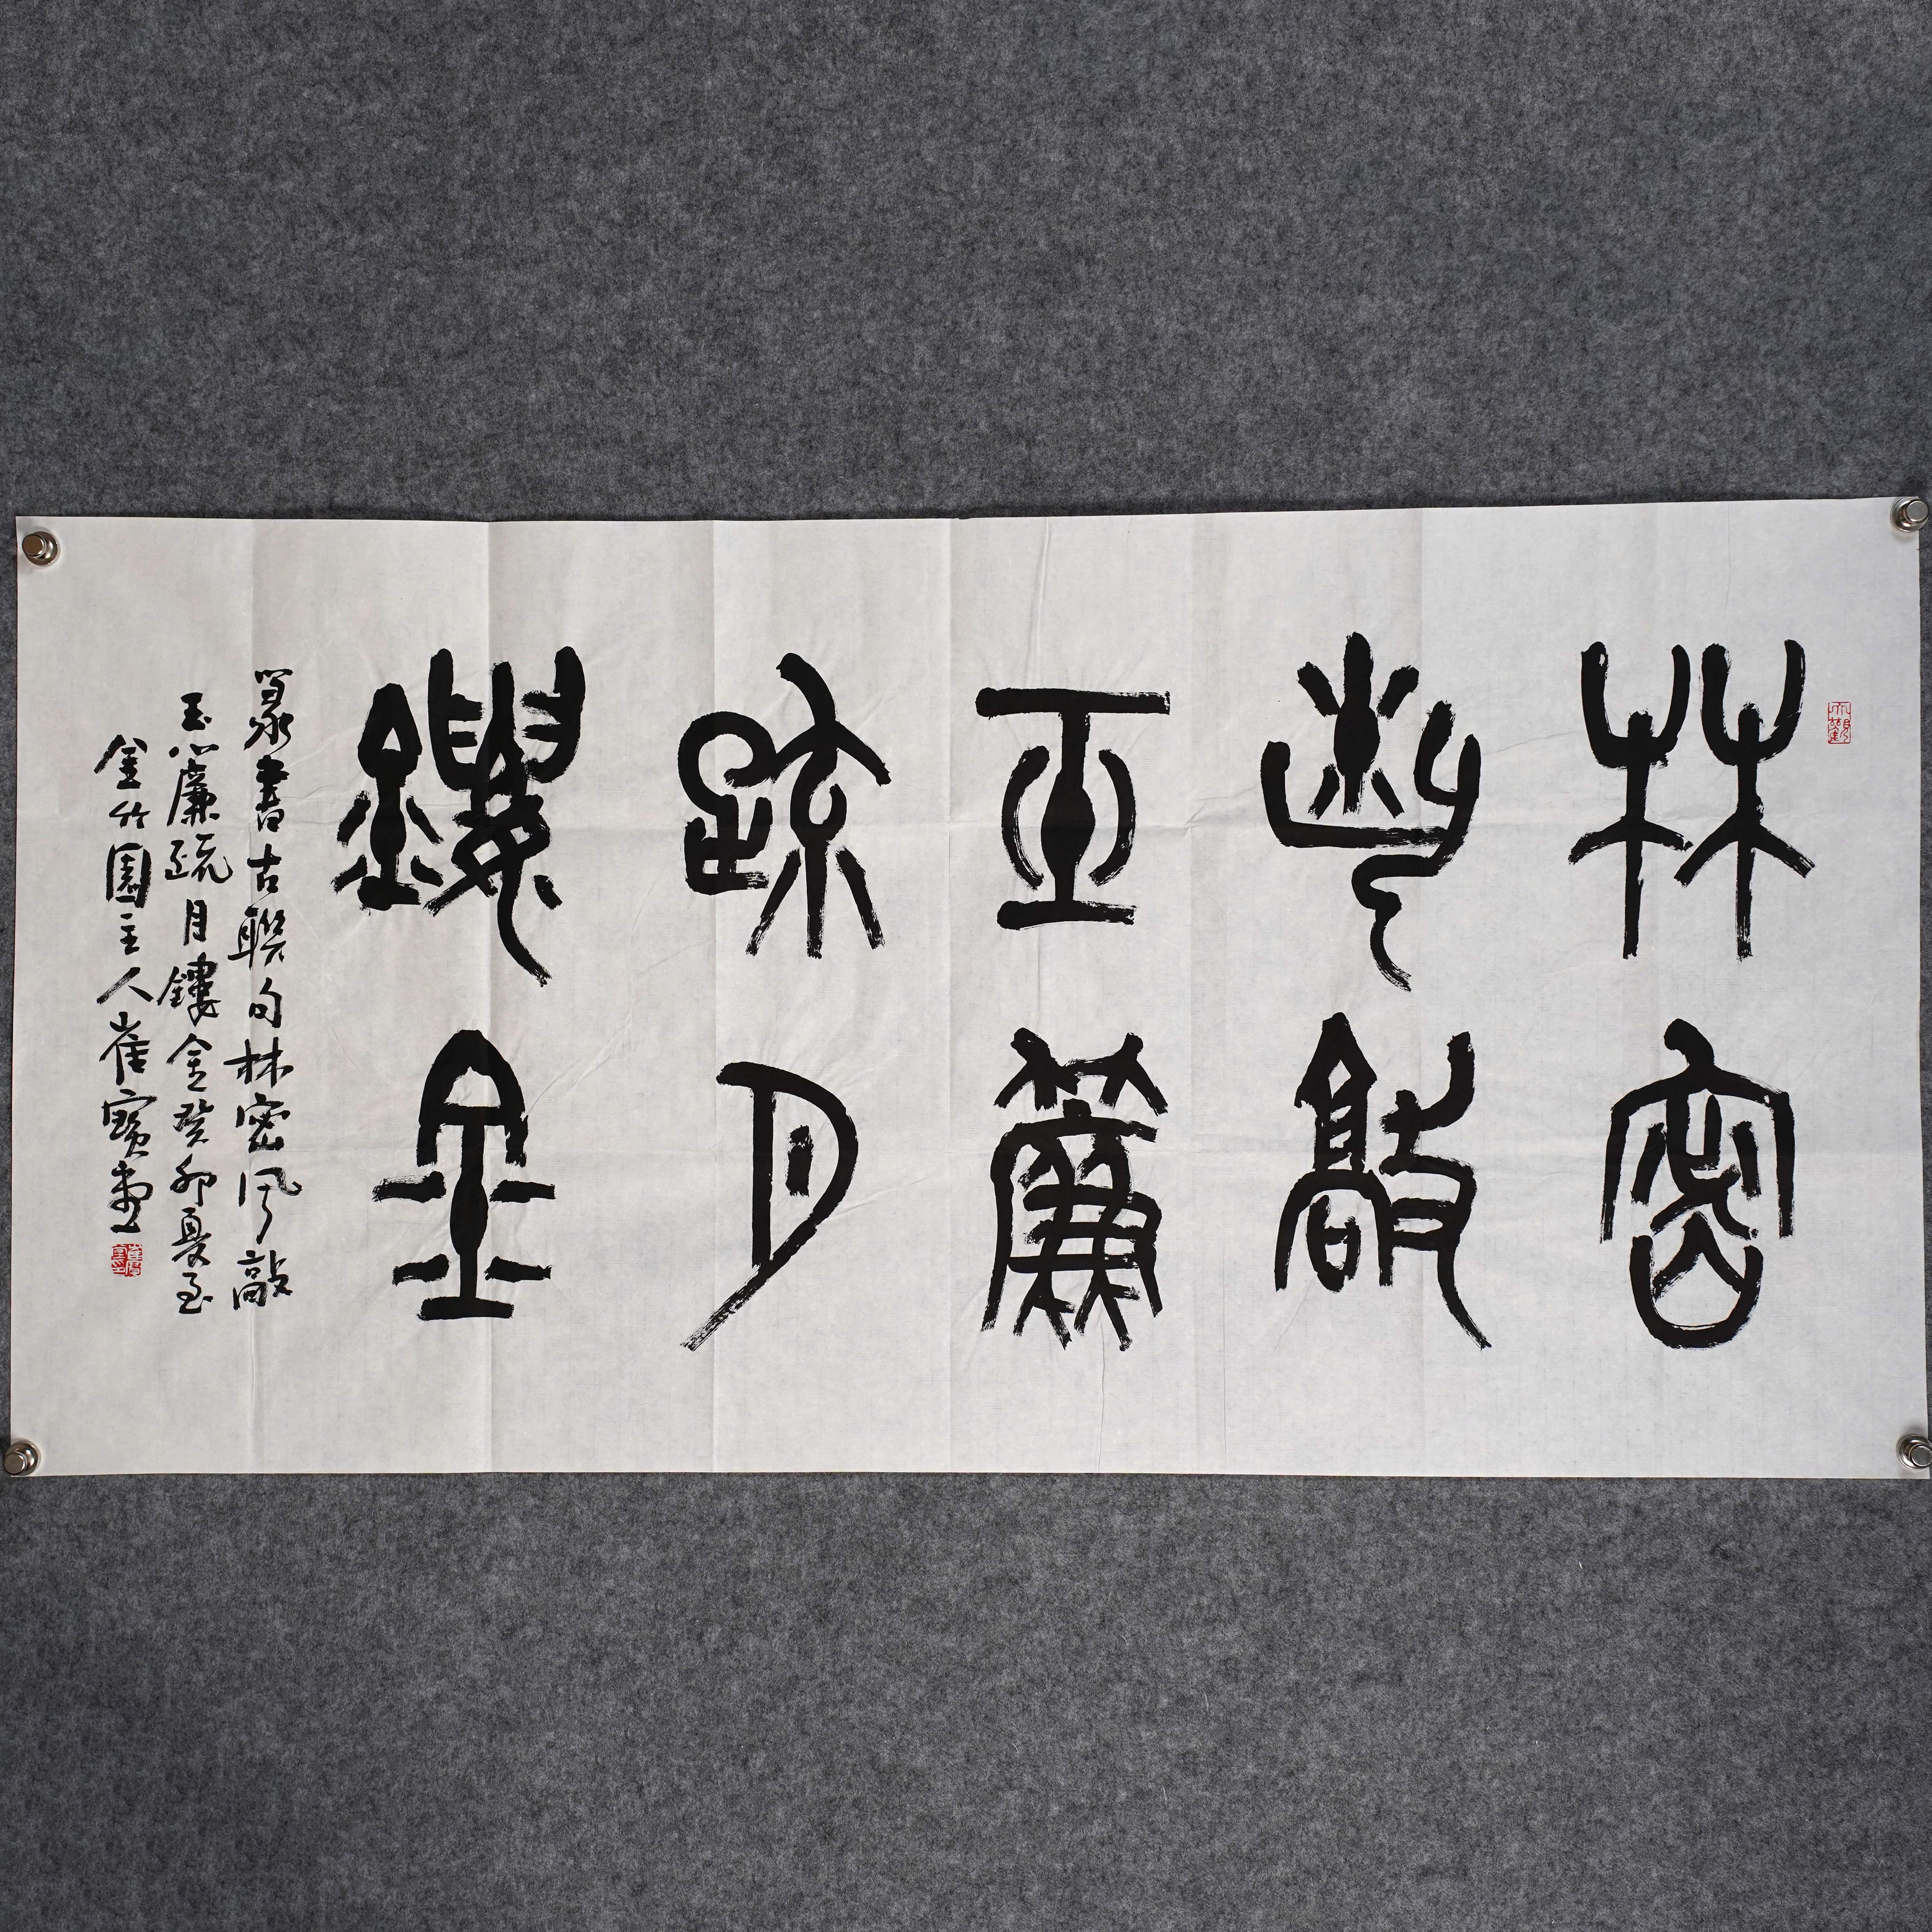 林密
風敲
玉簾
疏月
鏤金
篆書古聯句林密風敲
玉簾疏月鏤金癸卯夏至
金竹園主人崔寶堂